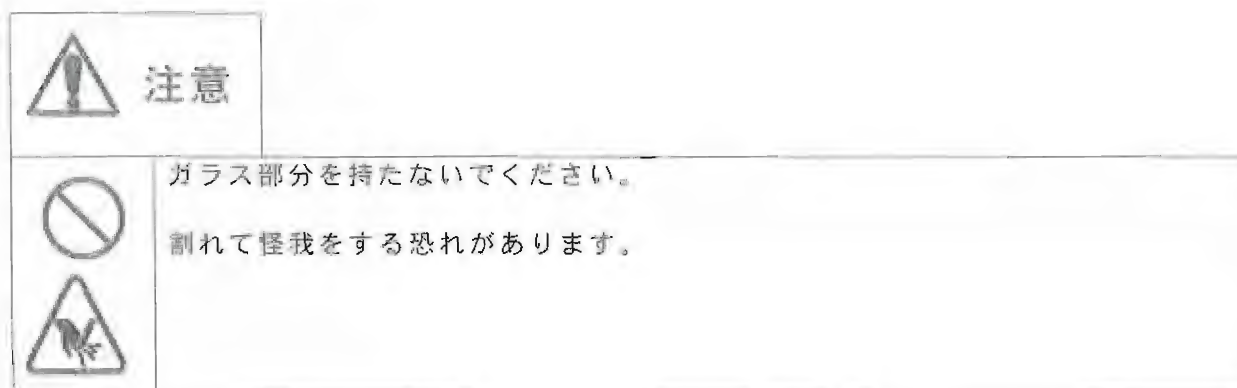 注意
ガラス部分を持たないでください。
割れて怪我をする恐れがあります。